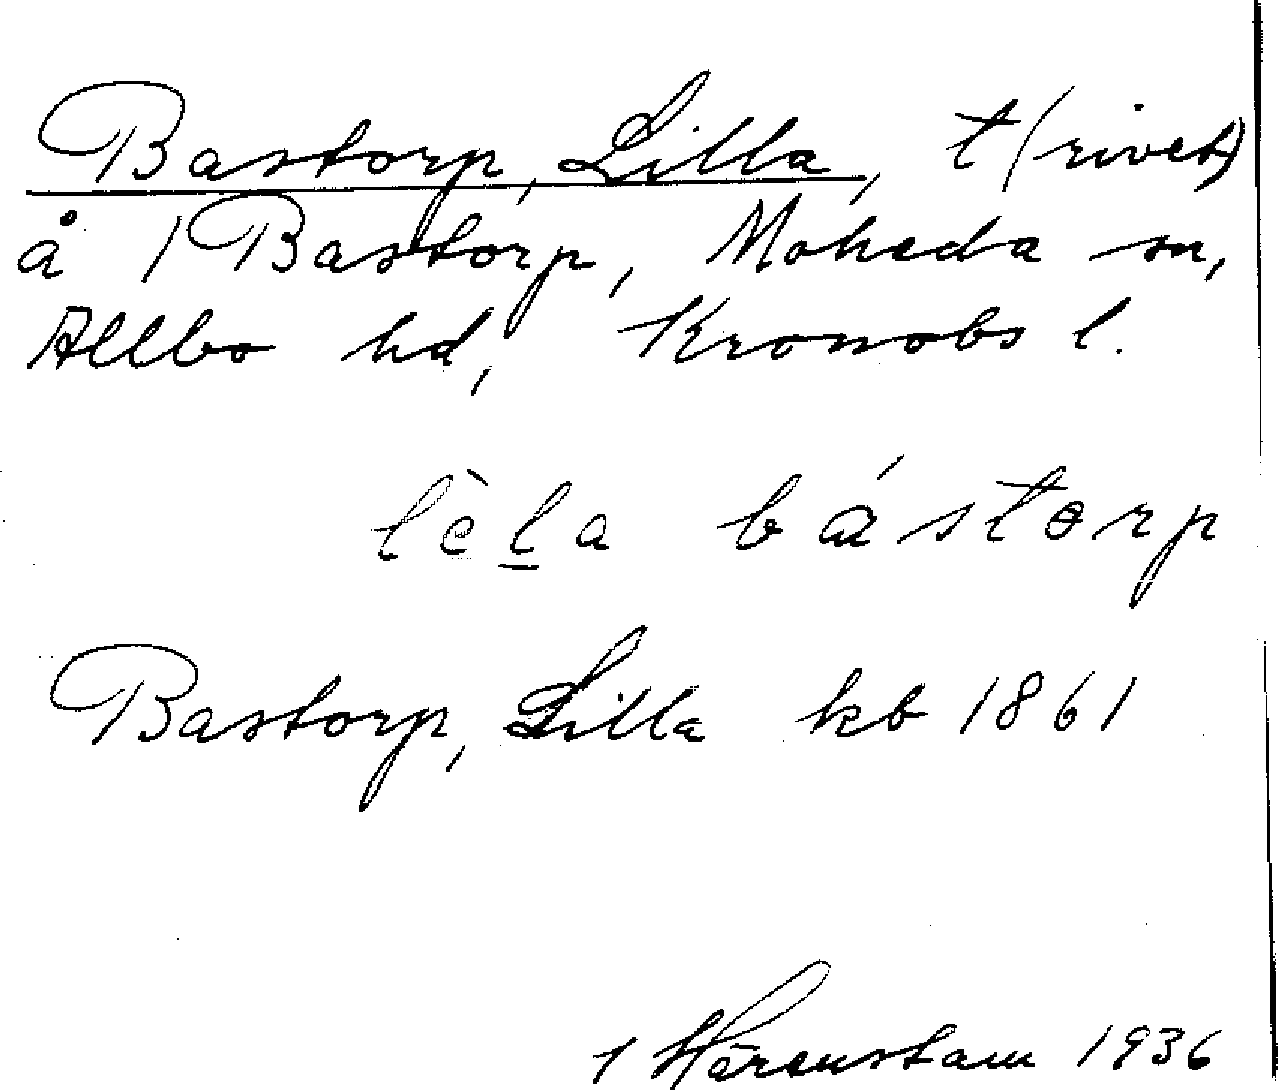 Bastorp, Lilla, t (rivet)
å 1 Bastorp, Moheda sn,
Allbo hd, Kronobs l.
lèḻa bástɵrp
Bastorp, Lilla kb 1861
Härenstam 1936